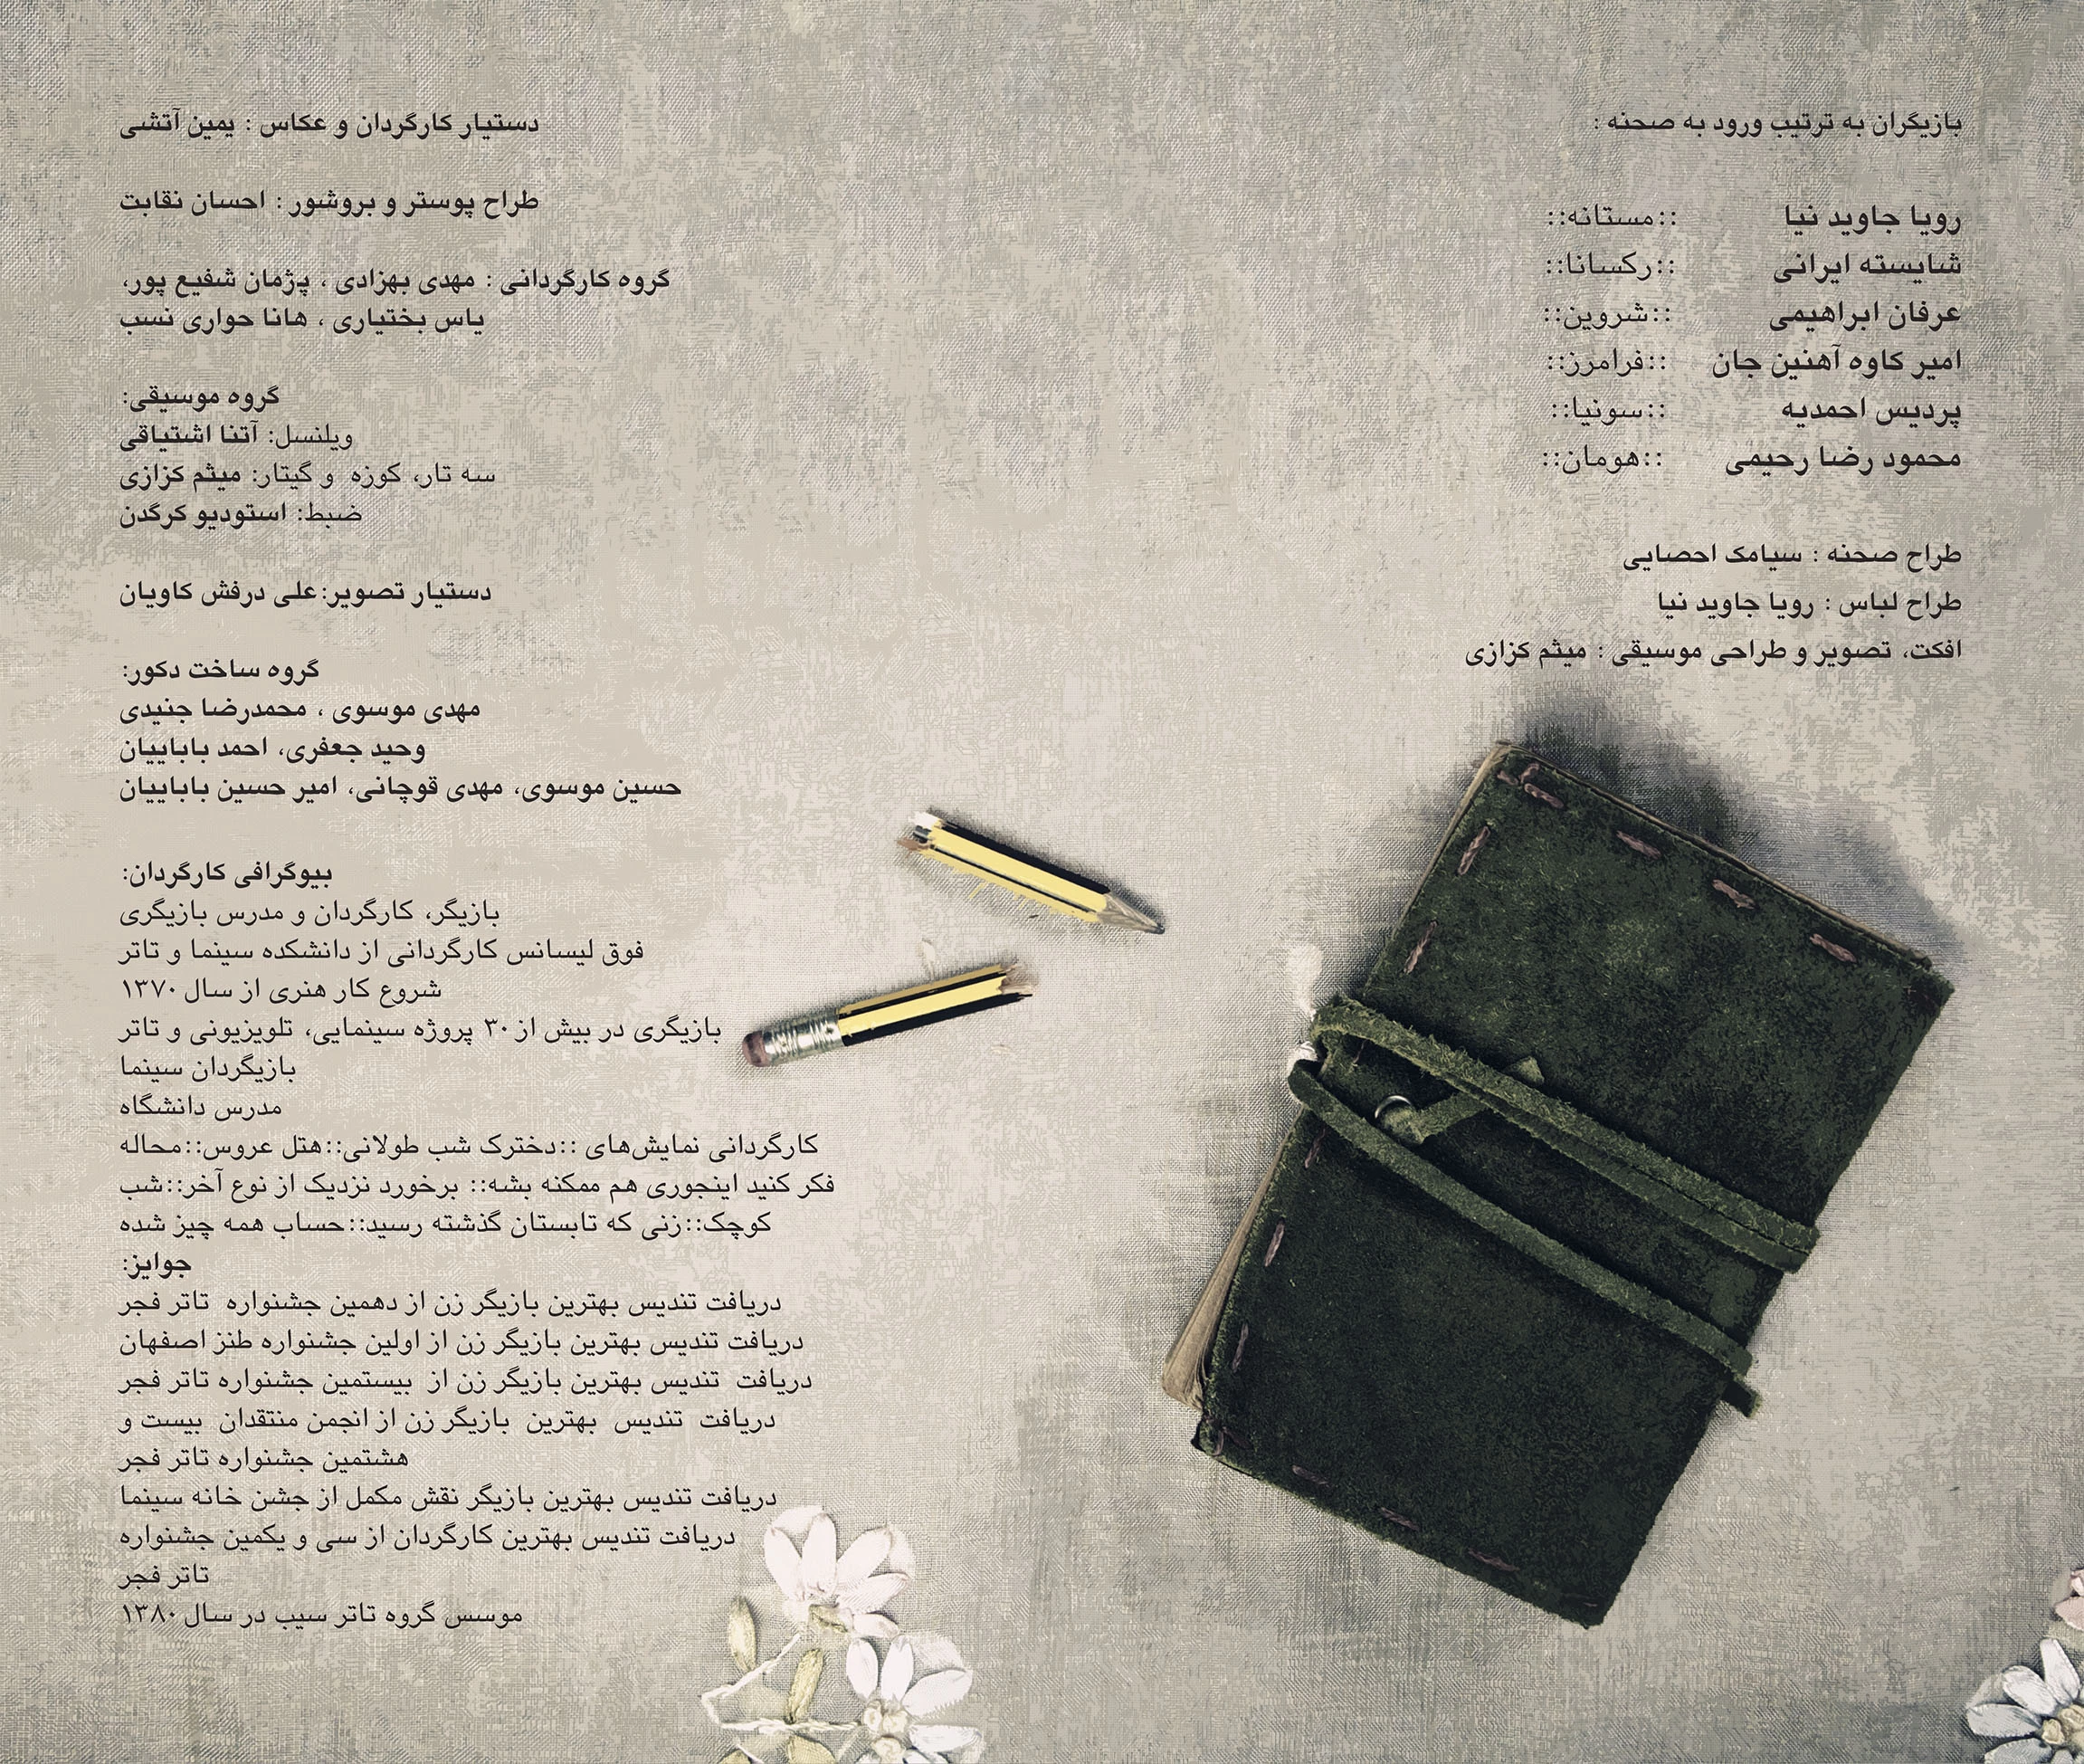 بازیگران به ترتیب ورود به صحنه :
رویا جاوید نیا ::مستانه::
شایسته ایرانی ::رکسانا::
عرفان ابراهیمی ::شروین::
امیر کاوه آهنین جان ::فرامرز::
پردیس احمدیه ::سونیا::
محمود رضا رحیمی ::هومان::
طراح صحنه : سیامک احصایی
طراح لباس : رویا جاوید نیا
افکت، تصویر و طراحی موسیقی : میثم کزازی
دستیار کارگردان و عکاس : یمین آتشی
طراح پوستر و بروشور : احسان نقابت
گروه کارگردانی : مهدی بهزادی ، پژمان شفیع پور،
یاس بختیاری ، هانا حواری نسب
گروه موسیقی:
ویلنسل: آتنا اشتیاقی
سه تار، کوزه و گیتار: میثم کزازی
ضبط: استودیو کرگدن
دستیار تصویر:علی درفش کاویان
گروه ساخت دکور:
مهدی موسوی ، محمدرضا جنیدی
وحید جعفری، احمد باباییان
حسین موسوی، مهدی قوچانی، امیر حسین باباییان
بیوگرافی کارگردان:
بازیگر، کارگردان و مدرس بازیگری
فوق لیسانس کارگردانی از دانشکده سینما و تاتر
شروع کار هنری از سال ۱۳۷۰
بازیگری در بیش از ۳۰ پروژه سینمایی، تلویزیونی و تاتر
بازیگردان سینما
مدرس دانشگاه
کارگردانی نمایش‌های ::دخترک شب طولانی::هتل عروس::محاله
فکر کنید اینجوری هم ممکنه بشه:: برخورد نزدیک از نوع آخر::شب
کوچک::زنی که تابستان گذشته رسید::حساب همه چیز شده
جوایز:
دریافت تندیس بهترین بازیگر زن از دهمین جشنواره تاتر فجر
دریافت تندیس بهترین بازیگر زن از اولین جشنواره طنز اصفهان
دریافت تندیس بهترین بازیگر زن از بیستمین جشنواره تاتر فجر
دریافت تندیس بهترین بازیگر زن از انجمن منتقدان بیست و
هشتمین جشنواره تاتر فجر
دریافت تندیس بهترین بازیگر نقش مکمل از جشن خانه سینما
دریافت تندیس بهترین کارگردان از سی و یکمین جشنواره
تاتر فجر
موسس گروه تاتر سیب در سال ۱۳۸۰